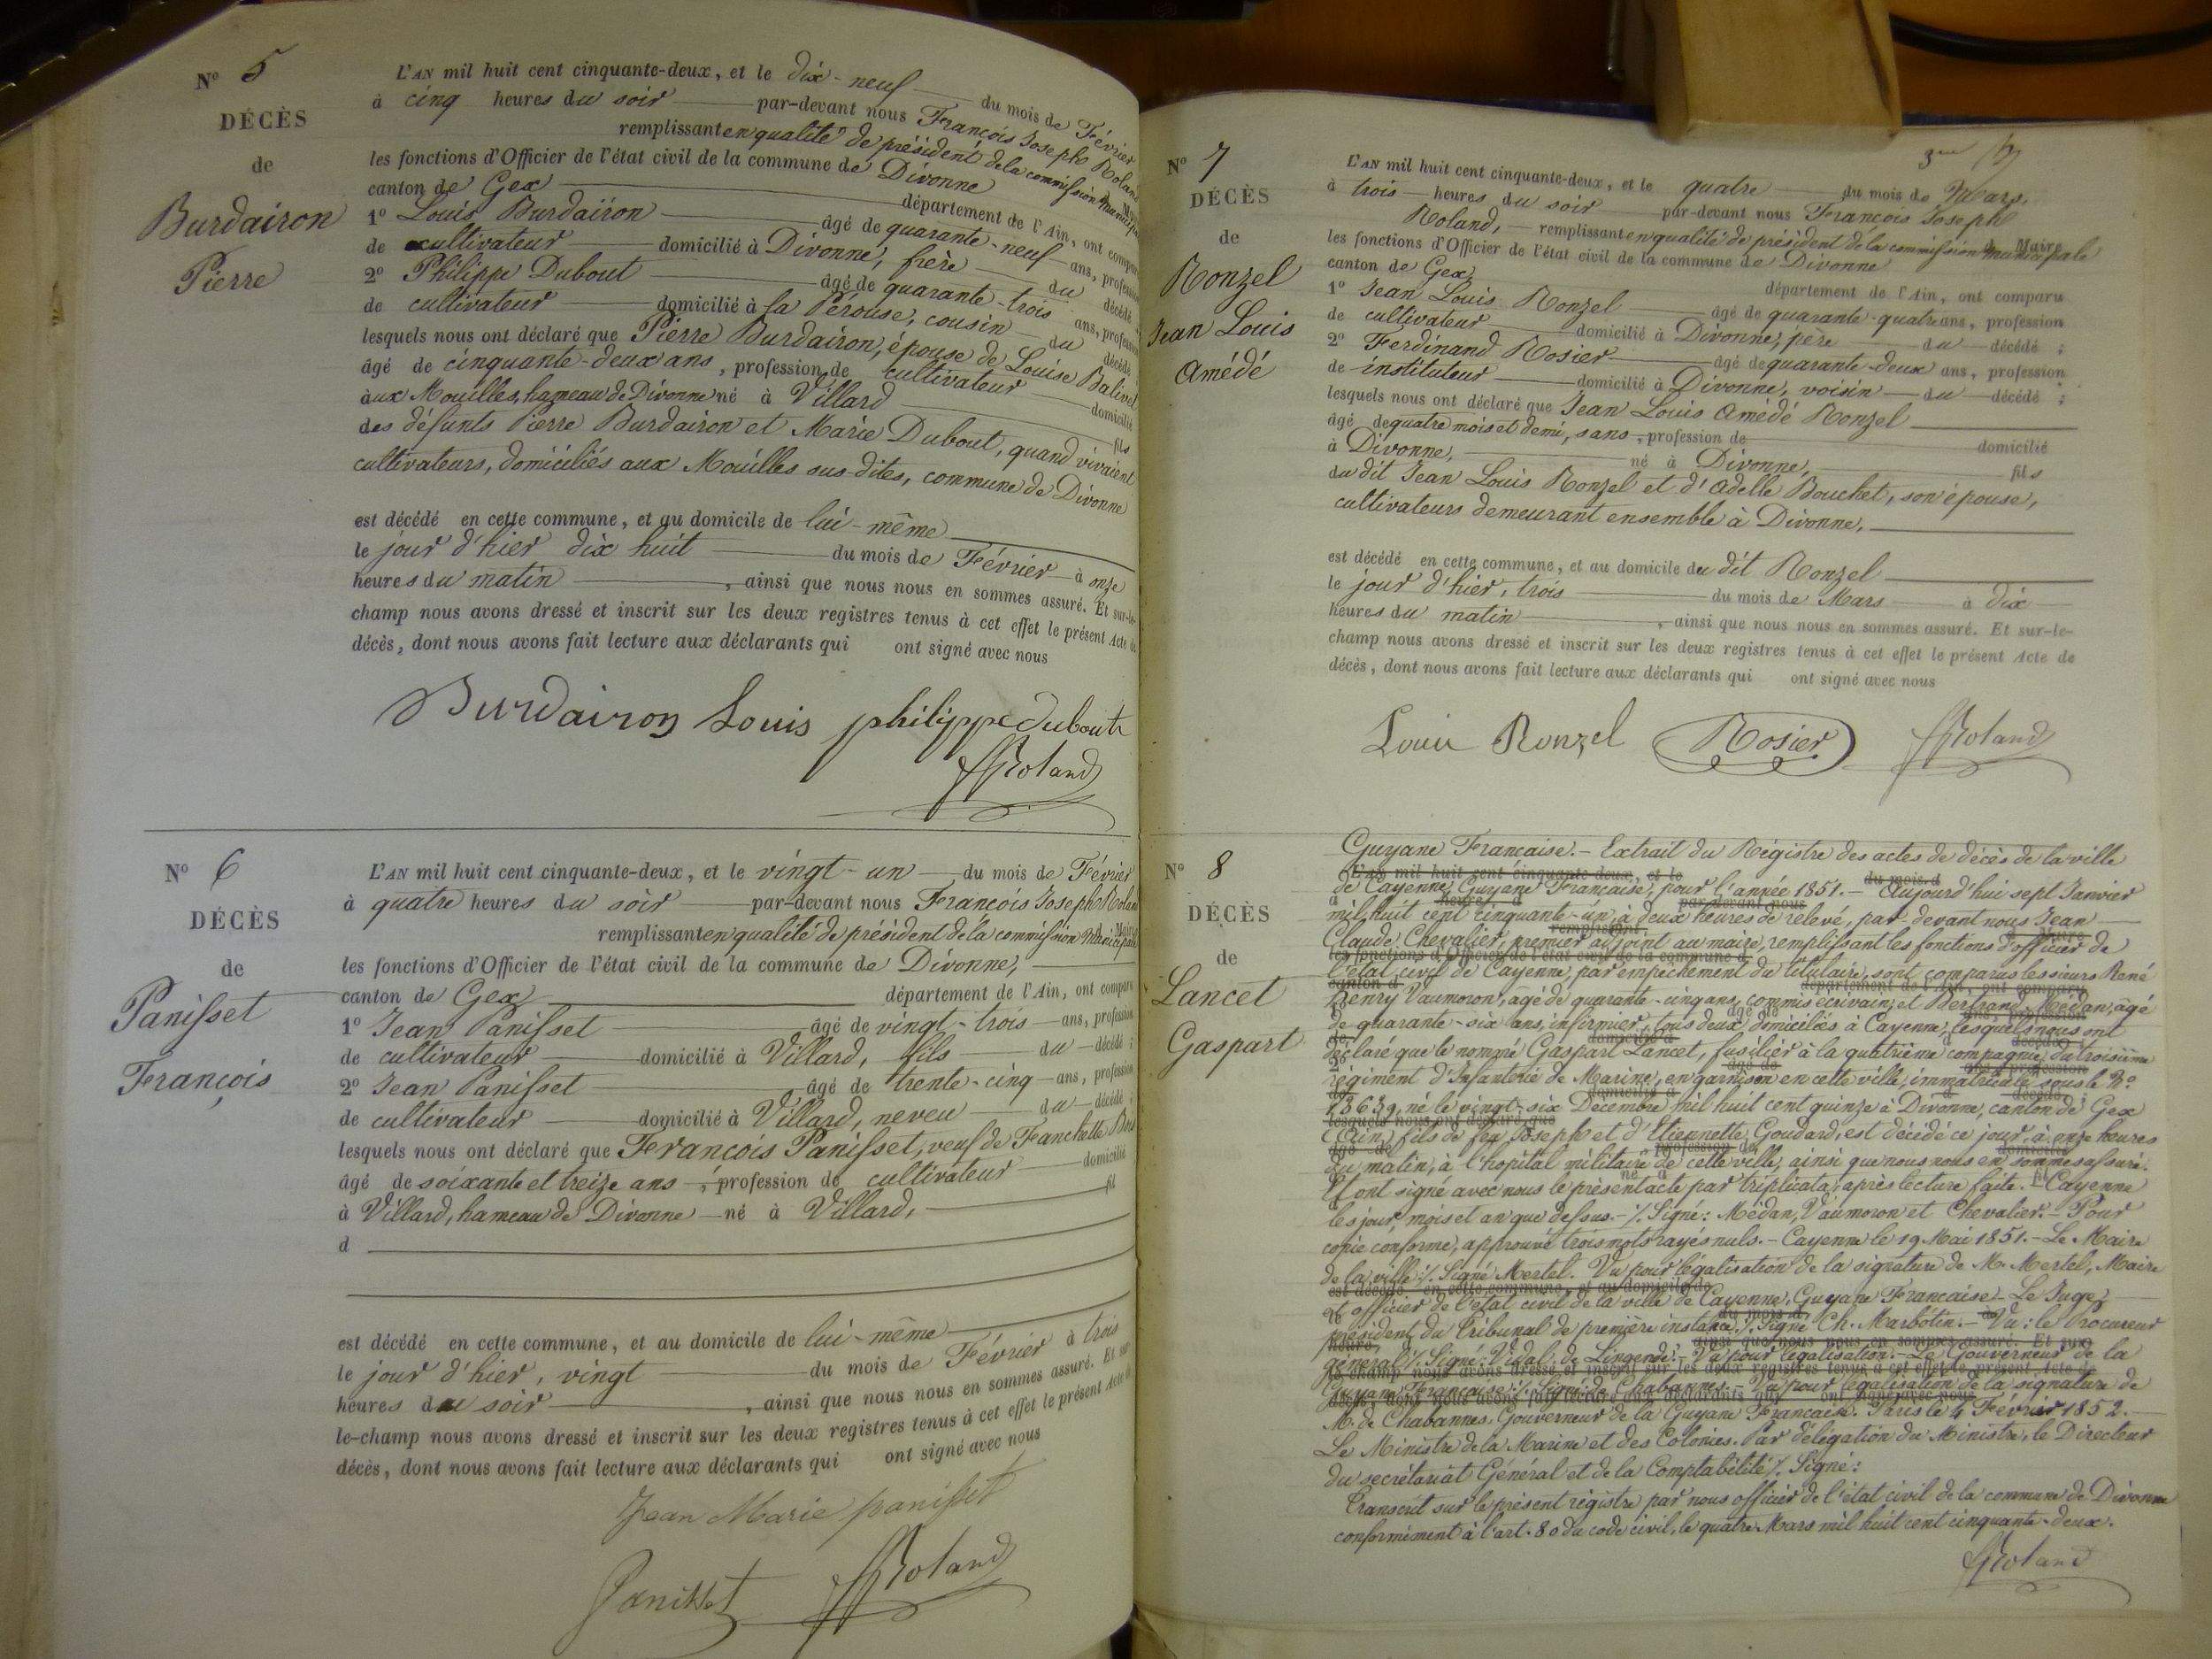 N° 5
DÉCÈS
de
Burdairon
Pierre
L'AN mil huit cent cinquante-deux, et le dix-neuf du mois de Février
à cinq heures du soir par-devant nous François Joseph Roland
remplissant en qualité de président de la commission municipale
les fonctions d'Officier de l'état civil de la commune de Divonne
canton de Gex département de l'Ain, ont comparu
1° Louis Burdairon âgé de quarante-neuf ans, profession
de cultivateur domicilié à Divonne, frère du décédé
2° Philippe Dubout âgé de quarante-trois ans, profession
de cultivateur domicilié à la Pérouse, cousin du décédé
lesquels nous ont déclaré que Pierre Burdairon, épouse de Louise Balivet
âgé de cinquante-deux ans, profession de cultivateur domicilié
aux Mouilles, hameau de Divonne né à Villard fils
des défunts Pierre Burdairon et Marie Dubout, quand vivaient
cultivateurs, domiciliés aux Mouilles sus-dites, commune de Divonne
est décédé en cette commune, et au domicile de lui-même
le jour d'hier dix huit du mois de Février à onze
heures du matin, ainsi que nous nous en sommes assuré. Et sur-le-
champ nous avons dressé et inscrit sur les deux registres tenus à cet effet le présent Acte de
décès, dont nous avons fait lecture aux déclarants qui ont signé avec nous
Burdairon Louis philippe dubout
Roland
N° 6
DÉCÈS
de
Panisset
François
L'AN mil huit cent cinquante-deux, et le vingt-un du mois de Février
à quatre heures du soir par-devant nous François Joseph Roland
remplissant en qualité de président de la commission municipale
les fonctions d'Officier de l'état civil de la commune de Divonne,
canton de Gex département de l'Ain, ont comparu
1° Jean Panisset âgé de vingt-trois ans, profession
de cultivateur domicilié à Villard, fils du décédé ;
2° Jean Panisset âgé de trente-cinq ans, profession
de cultivateur domicilié à Villard, neveu du décédé ;
lesquels nous ont déclaré que François Panisset, veuf de Franchette
âgé de soixante et treize ans, profession de cultivateur domicilié
à Villard, hameau de Divonne né à Villard, fil
d
est décédé en cette commune, et au domicile de lui-même
le jour d'hier, vingt du mois de Février à trois
heures du soir, ainsi que nous nous en sommes assuré. Et sur
le-champ nous avons dressé et inscrit sur les deux registres tenus à cet effet le présent Acte de
décès, dont nous avons fait lecture aux déclarants qui ont signé avec nous
Jean Marie panisset
Panisset Roland
3me
N° 7
DÉCÈS
de
Ronzel
Jean Louis
Amédé
L'AN mil huit cent cinquante-deux, et le quatre du mois de Mars,
à trois heures du soir par-devant nous François Joseph
Roland, remplissant en qualité de président de la commission municipale
les fonctions d'Officier de l'état civil de la commune de Divonne
canton de Gex département de l'Ain, ont comparu
1° Jean Louis Ronzel âgé de quarante-quatre ans, profession
de cultivateur domicilié à Divonne, père du décédé ;
2° Ferdinand Rosier âgé de quarante-deux ans, profession
de instituteur domicilié à Divonne, voisin du décédé ;
lesquels nous ont déclaré que Jean Louis Amédé Ronzel
âgé de quatre mois et demi, sans, profession de domicilié
à Divonne, né à Divonne, fils
du dit Jean Louis Ronzel et d'Adelle Bouchet, son épouse,
cultivateurs demeurant ensemble à Divonne,
est décédé en cette commune, et au domicile du dit Ronzel
le jour d'hier, trois du mois de Mars à dix
heures du matin, ainsi que nous nous en sommes assuré. Et sur-le-
champ nous avons dressé et inscrit sur les deux registres tenus à cet effet le présent Acte de
décès, dont nous avons fait lecture aux déclarants qui ont signé avec nous
Louis Ronzel Rosier Roland
N° 8
DÉCÈS
de
Lancet
Gaspart
Guyane Francaise.- Extrait du Régistre des actes de décès de la ville
de Cayenne, Guyane Française, pour l'année 1851.- Aujourd'hui sept Janvier
mil huit cent cinquante-un, à deux heures de relevé, par-devant nous Jean
Claude Chevalier, premier adjoint au maire, remplissant les fonctions d'officier de
l'état civil de Cayenne, par empêchement du titulaire, sont comparus les sieurs René
Henry Vaumoron, âgé de quarante-cinq ans, commis écrivain, et Bertrand Médan, âgé
de quarante-six ans, infirmier, tous deux domiciliés à Cayenne, lesquels nous ont
déclaré que le nommé Gaspart Lancet, fusilier à la quatrième compagnie du troisième
régiment d'Infanterie de Marine, en garnison en cette ville, immatriculé sous le N°
13639, né le vingt-six Décembre mil huit cent quinze à Divonne, canton de Gex
(Ain), fils de feu Joseph et d'Etiennette Goudard, est décédé ce jour, à onze heures
du matin, à l'hopital militaire de cette ville, ainsi que nous nous en sommes assuré.
Et ont signé avec nous le présent acte par triplicata, après lecture faite.- Cayenne
les jour, mois et an que dessus.-/. Signé: Médan, Vaumoron et Chevalier.- Pour
copie conforme, approuvé trois mots rayés nuls.- Cayenne le 19 Mai 1851.- Le Maire
de la ville ./. Signé Mertel. Vu pour légalisation de la signature de M. Mertel, Maire
et officier de l'état civil de la ville de Cayenne, Guyane Francaise.- Le Juge,
président du Tribunal de première instance, ./. Signé Ch. Marbotin.- Vu: le Procureur
général ./. Signé: Vidal de Lingendé.- Vu pour légalisation.- Le Gouverneur de la
Guyane Française ./. Signé: de Chabannes.- Vu pour légalisation de la signature de
M. de Chabannes, Gouverneur de la Guyane Francaise. Paris le 4 Février 1852.
Le Ministre de la Marine et des Colonies. Par délégation du Ministre, le Directeur
du secrétariat Général et de la Comptabilité ./. Signé:
Transcrit sur le présent régistre par nous officier de l'état civil de la commune de Divonne
conformément à l'art. 80 du code civil, le quatre Mars mil huit cent cinquante-deux.
Roland